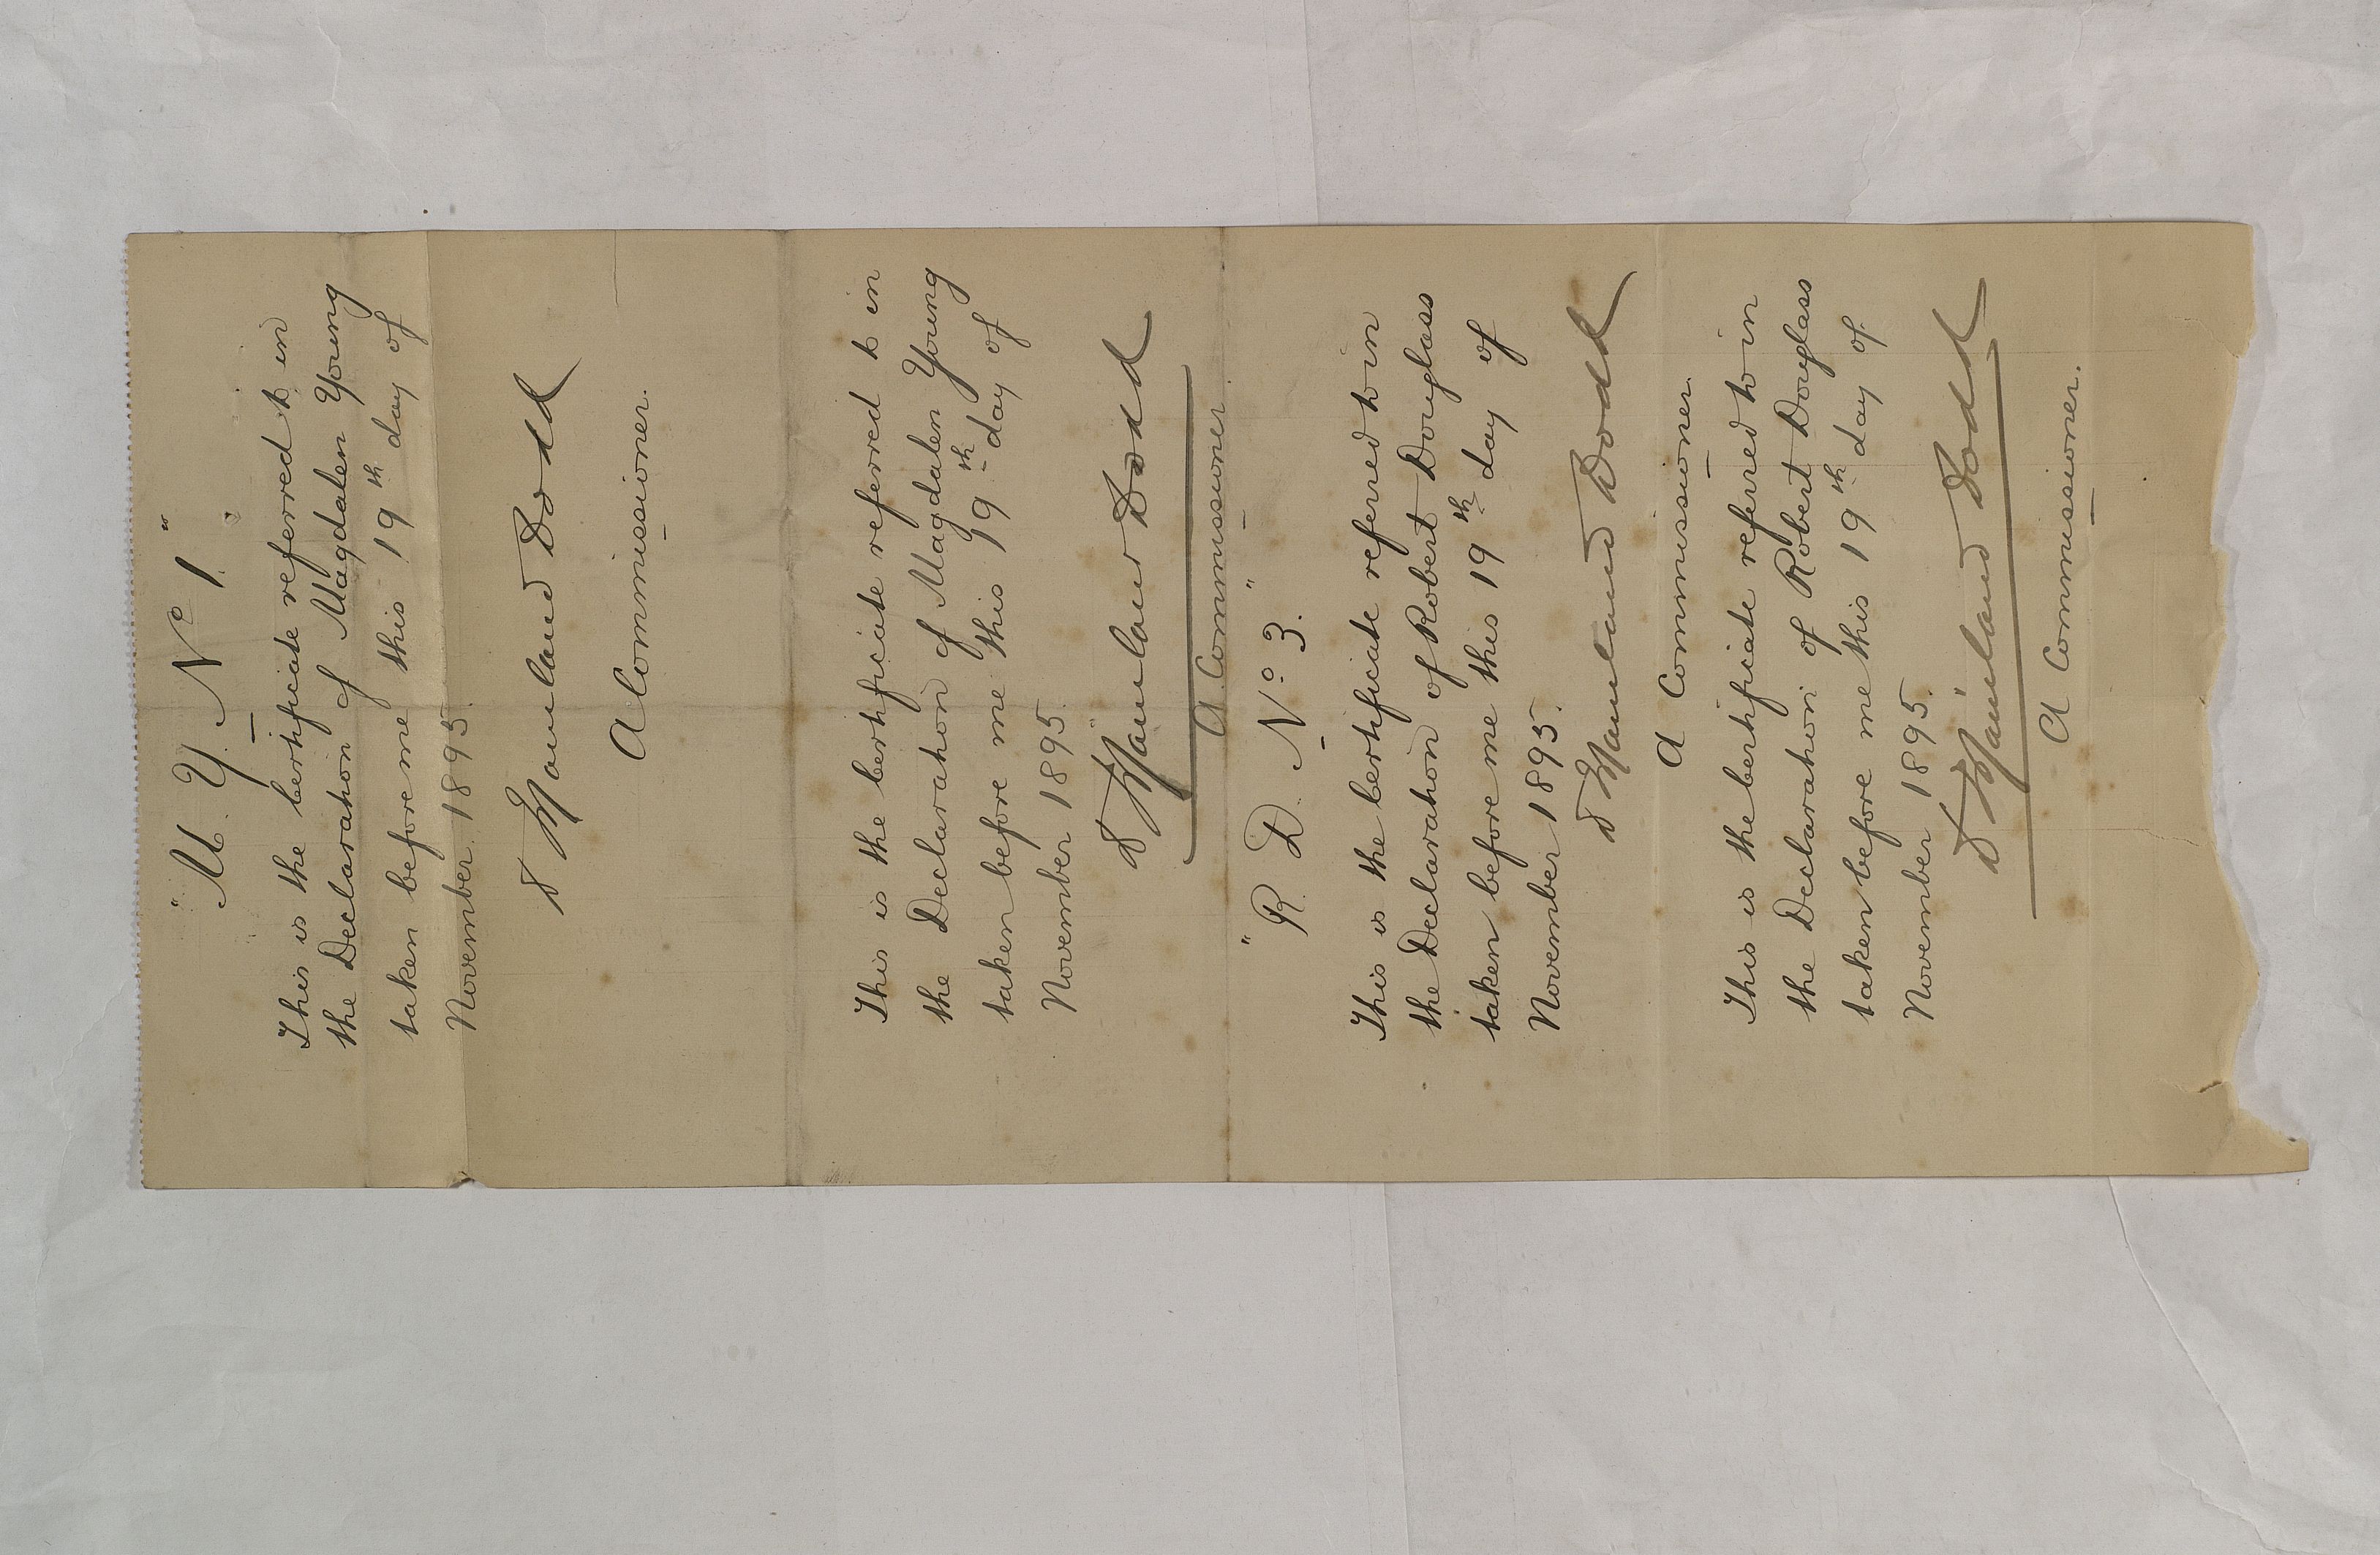 "M. Y. No 1."
This is the Certificate referred to in
the Declaration of Magdalen Young
taken before me this 19th day of
November 1895.
J Maitland Dodd
A Commissioner.
This is the Certificate referred to in
the Declaration of Magdalen Young
taken before me this 19th day of
November 1895.
J Maitland Dodd
A Commissioner
"R. D. No 3."
This is the Certificate referred to in
the Declaration of Robert Douglass
taken before me this 19th day of
November 1895.
J Maitland Dodd
A Commissioner.
This is the Certificate referred to in
the Declaration of Robert Douglass
taken before me this 19th day of
November 1895.
J Maitland Dodd
A Commissioner.